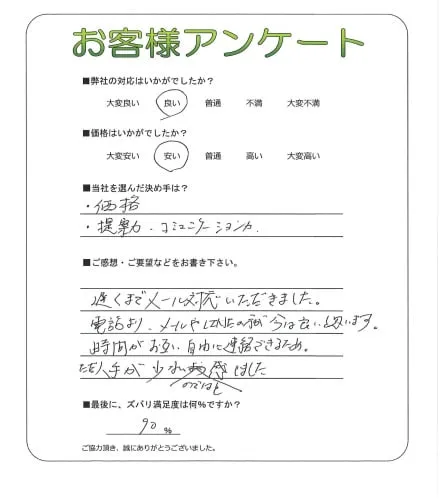 お客様アンケート
■弊社の対応はいかがでしたか?
大変良い 良い 普通 不満 大変不満
■価格はいかがでしたか?
大変安い 安い 普通 高い 大変高い
■当社を選んだ決め手は?
・価格
・提案力、コミュニケーション力、
■ご感想・ご要望などをお書き下さい。
遅くまでメール対応いただきました。
電話より、メールやLINEの方が今は良いと思います。
時間がお互い自由に連絡できるため。
ただ人手が少ない 感じました
のではと
■最後に、ズバリ満足度は何%ですか?
90 %
ご協力頂き、誠にありがとうございました。